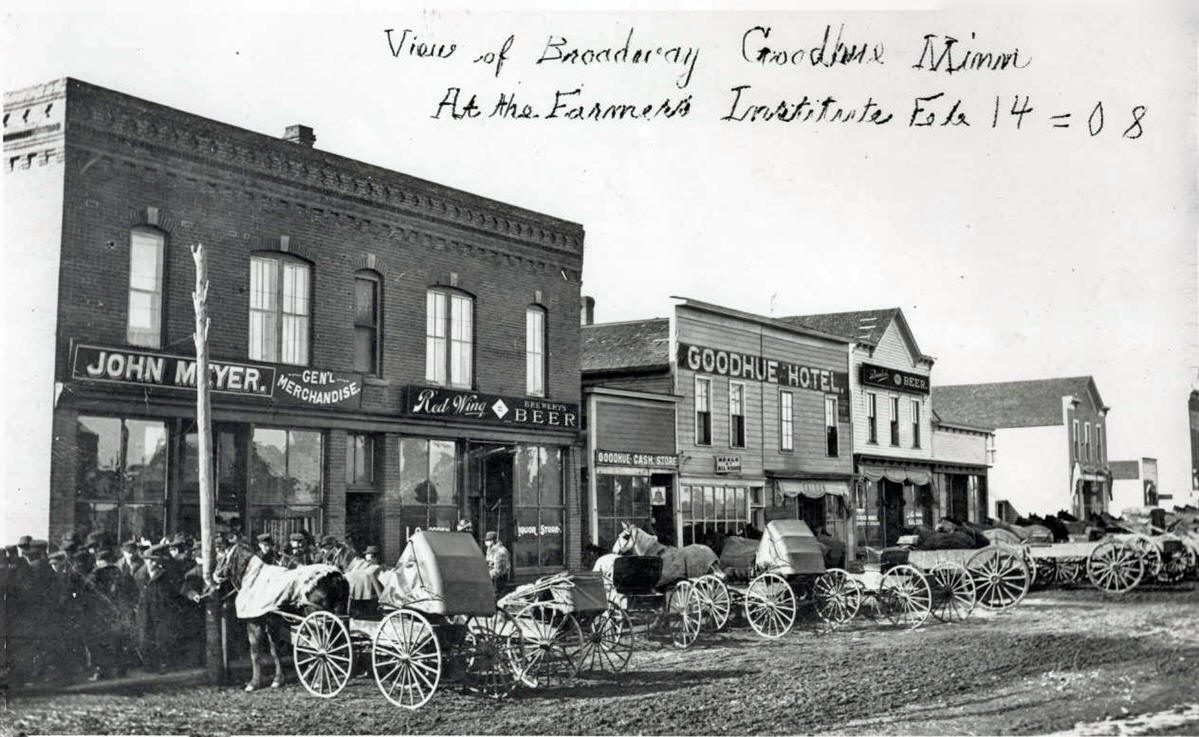 View of Broadway Goodhue Minn
At the Farmers Institute Feb 14 = 08
JOHN MEYER.
GEN'L
MERCHANDISE.
Red Wing BREWERY'S
BEER
GOODHUE HOTEL.
BEER.
GOODHUE CASH STORE
MEALS
LIQUOR STORE